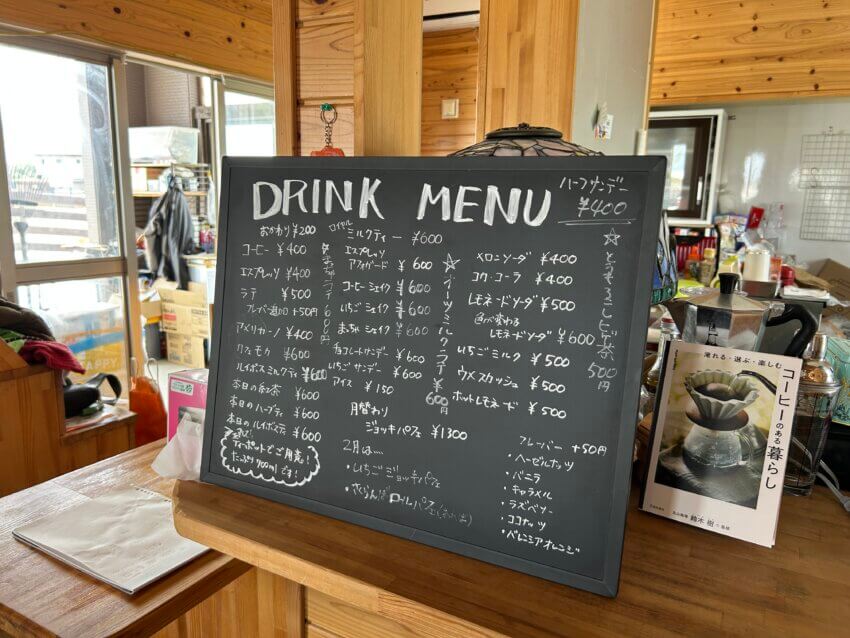 DRINK MENU
ハーフサンデー
¥400
おかわり ¥200
コーヒー ¥400
エスプレッソ ¥400
ラテ ¥500
フレーバー追加 +50円
アメリカーノ ¥400
カフェモカ ¥600
ルイボスミルクティ ¥600
本日の紅茶 ¥600
本日のハーブティ ¥600
本日のルイボスティ ¥600
ティーポットでご用意!
たっぷり700mlです!
ロイヤル ミルクティー ¥600
エスプレッソ
アフォガード ¥600
コーヒーシェイク ¥600
いちごシェイク ¥600
まっちゃシェイク ¥600
チョコレートサンデー ¥600
いちごサンデー ¥600
アイス ¥150
月替わり
ジョッキパフェ ¥1300
2月は…
・いちごジョッキパフェ
・さくらんぼロールパフェ
☆
メロンソーダ ¥400
コカ・コーラ ¥400
レモネードソーダ ¥500
色が変わる
レモネードソーダ ¥600
いちごミルク ¥500
ウメスカッシュ ¥500
ホットレモネード ¥500
フレーバー +50円
・ヘーゼルナッツ
・バニラ
・キャラメル
・ラズベリー
・ココナッツ
・バレンシアオレンジ
☆とうもろこしヒゲ茶 500円
淹れる・選ぶ・楽しむ
コーヒーのある暮らし
鈴木 樹